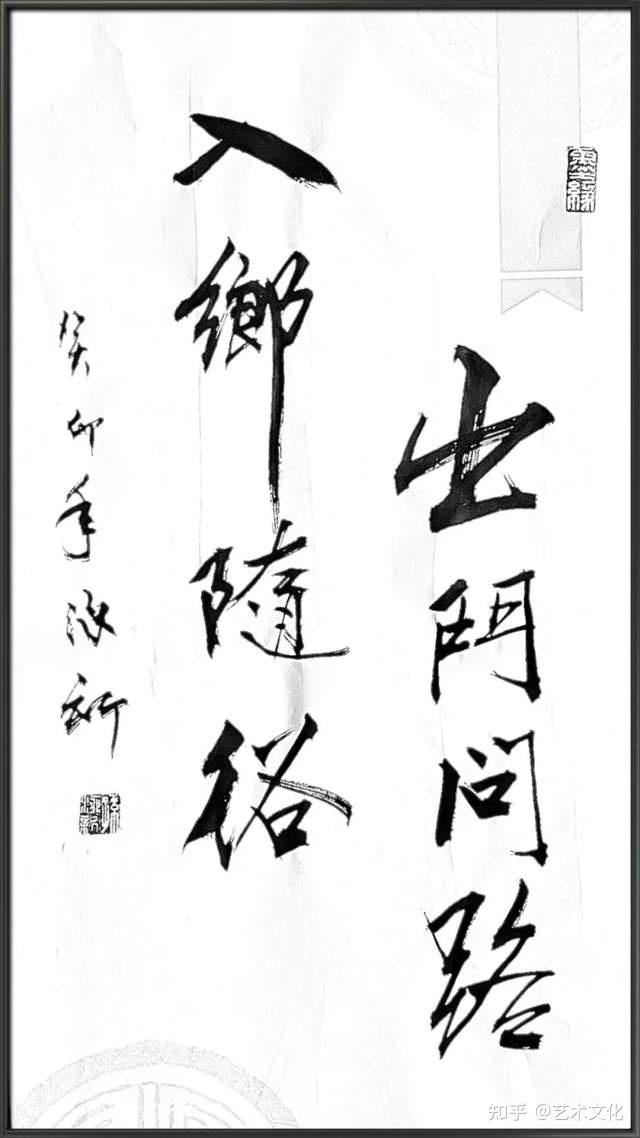 出門问路
入鄉随俗
癸卯年
知乎 @艺术文化